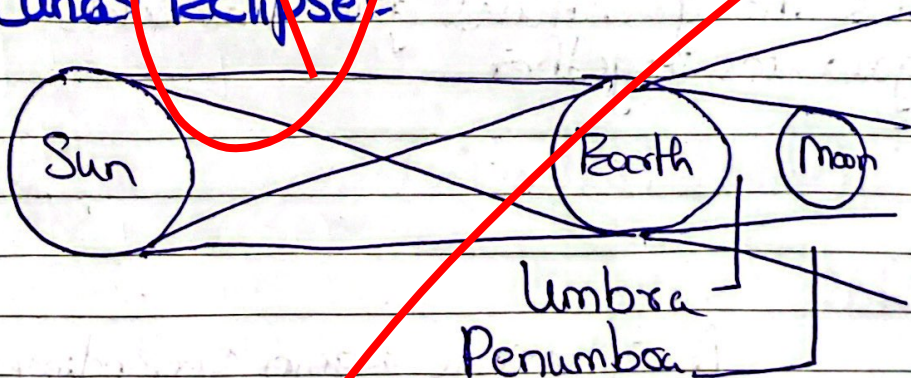 Lunar Eclipse:-
Sun Earth Moon
Umbra
Penumbra